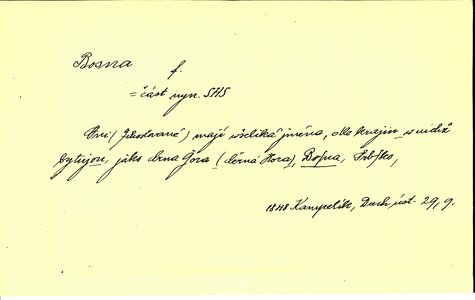 Bosna
f.
= část nyn. SHS
Oni (Jihoslované) mají všeliká jména, dle krajin v nichž
bytují, jako Crna Gora (Černá Hora), Boſna, Srbſko,
1848 Kampelik, Duch, úst. 29, 9.